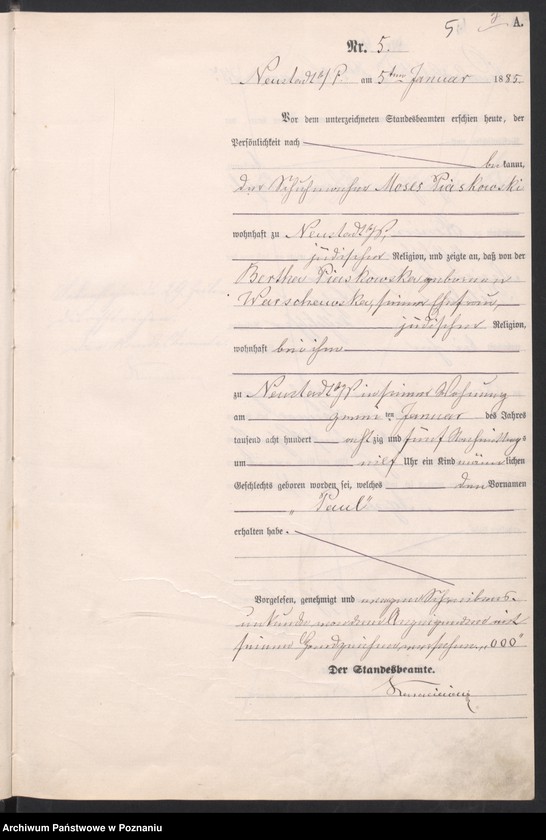 5
A.
Nr. 5.
Neustadt b/P. am 5ten Januar 1885.
Vor dem unterzeichneten Standesbeamten erschien heute, der
Persönlichkeit nach
bekannt,
der Schuhmacher Moses Piaskowski
wohnhaft zu Neustadt b/P,
jüdischer Religion, und zeigte an, daß von der
Bertha Piaskowska geborenen
Warschawska, seiner Ehefrau,
jüdischer Religion,
wohnhaft bei ihm
zu Neustadt b/P in seiner Wohnung
am zweiten Januar des Jahres
tausend acht hundert achtzig und fünf Nachmittags
um elf Uhr ein Kind männlichen
Geschlechts geboren worden sei, welches den Vornamen
„Paul“
erhalten habe.
Vorgelesen, genehmigt und wegen Schreibens-
unkunde von dem Anzeigenden mit
seinem Handzeichen versehen „000“
Der Standesbeamte.
Archiwum Państwowe w Poznaniu